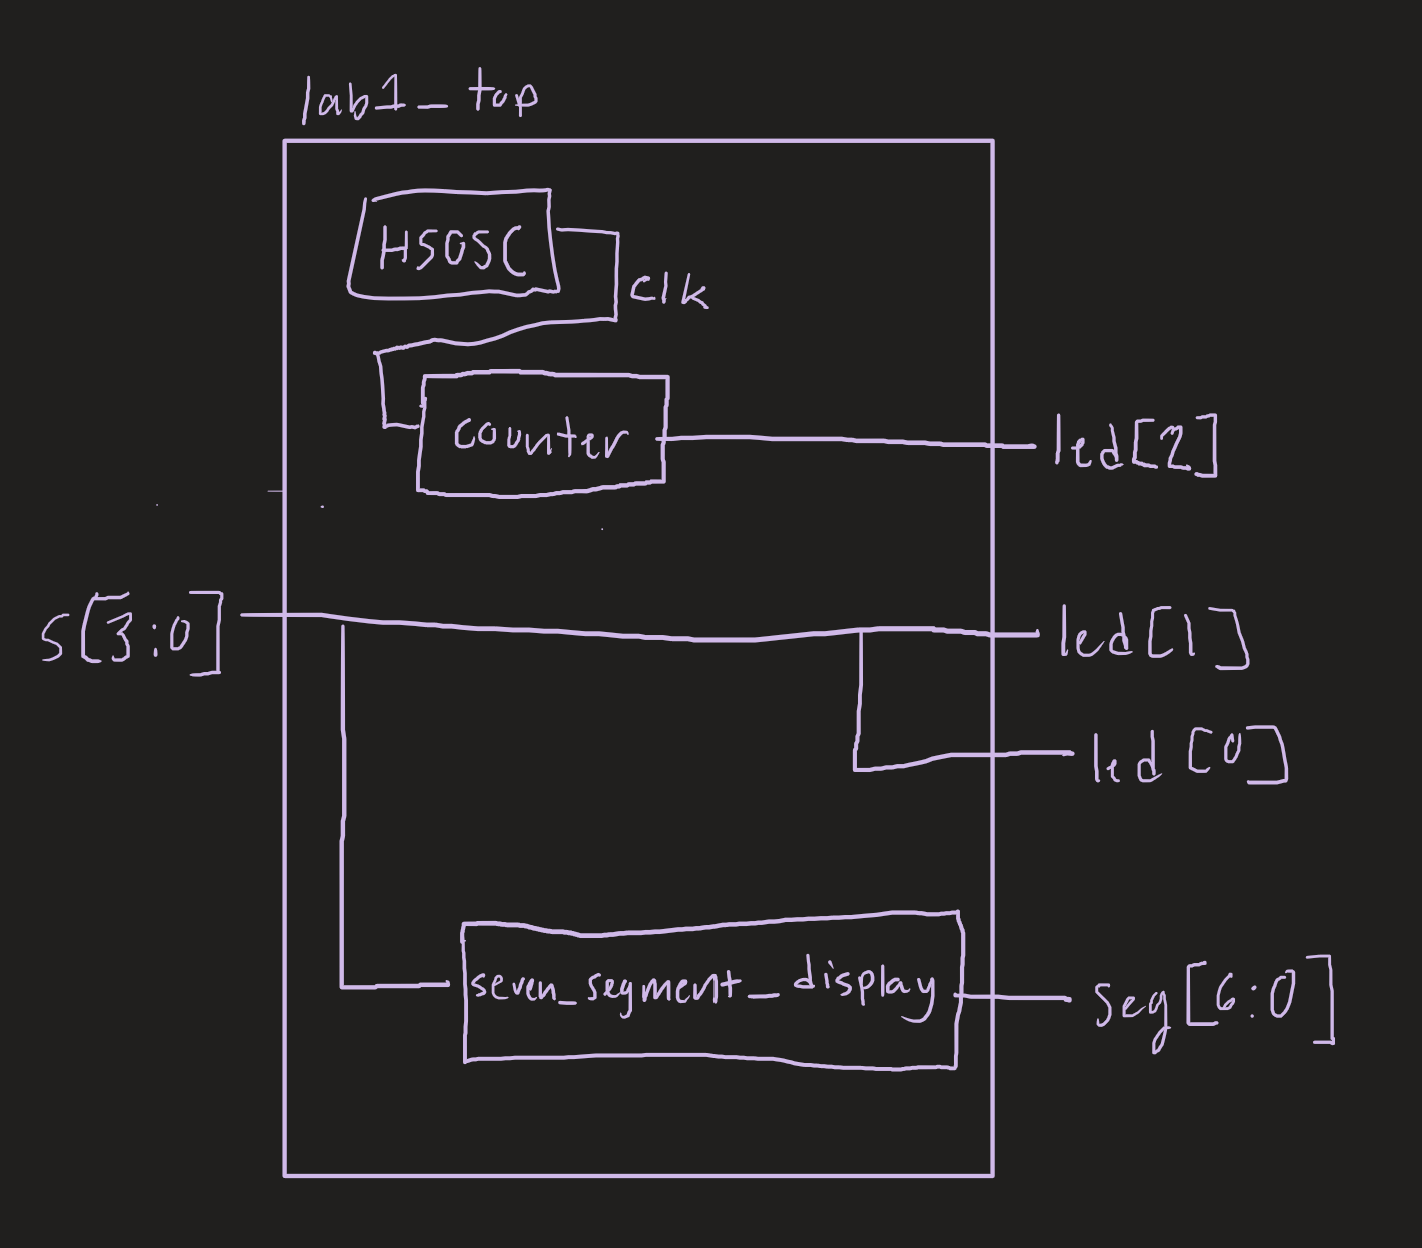 lab1_top
HSOSC
clk
counter
led[2]
s[3:0]
led[1]
led[0]
seven_segment_display
seg[6:0]